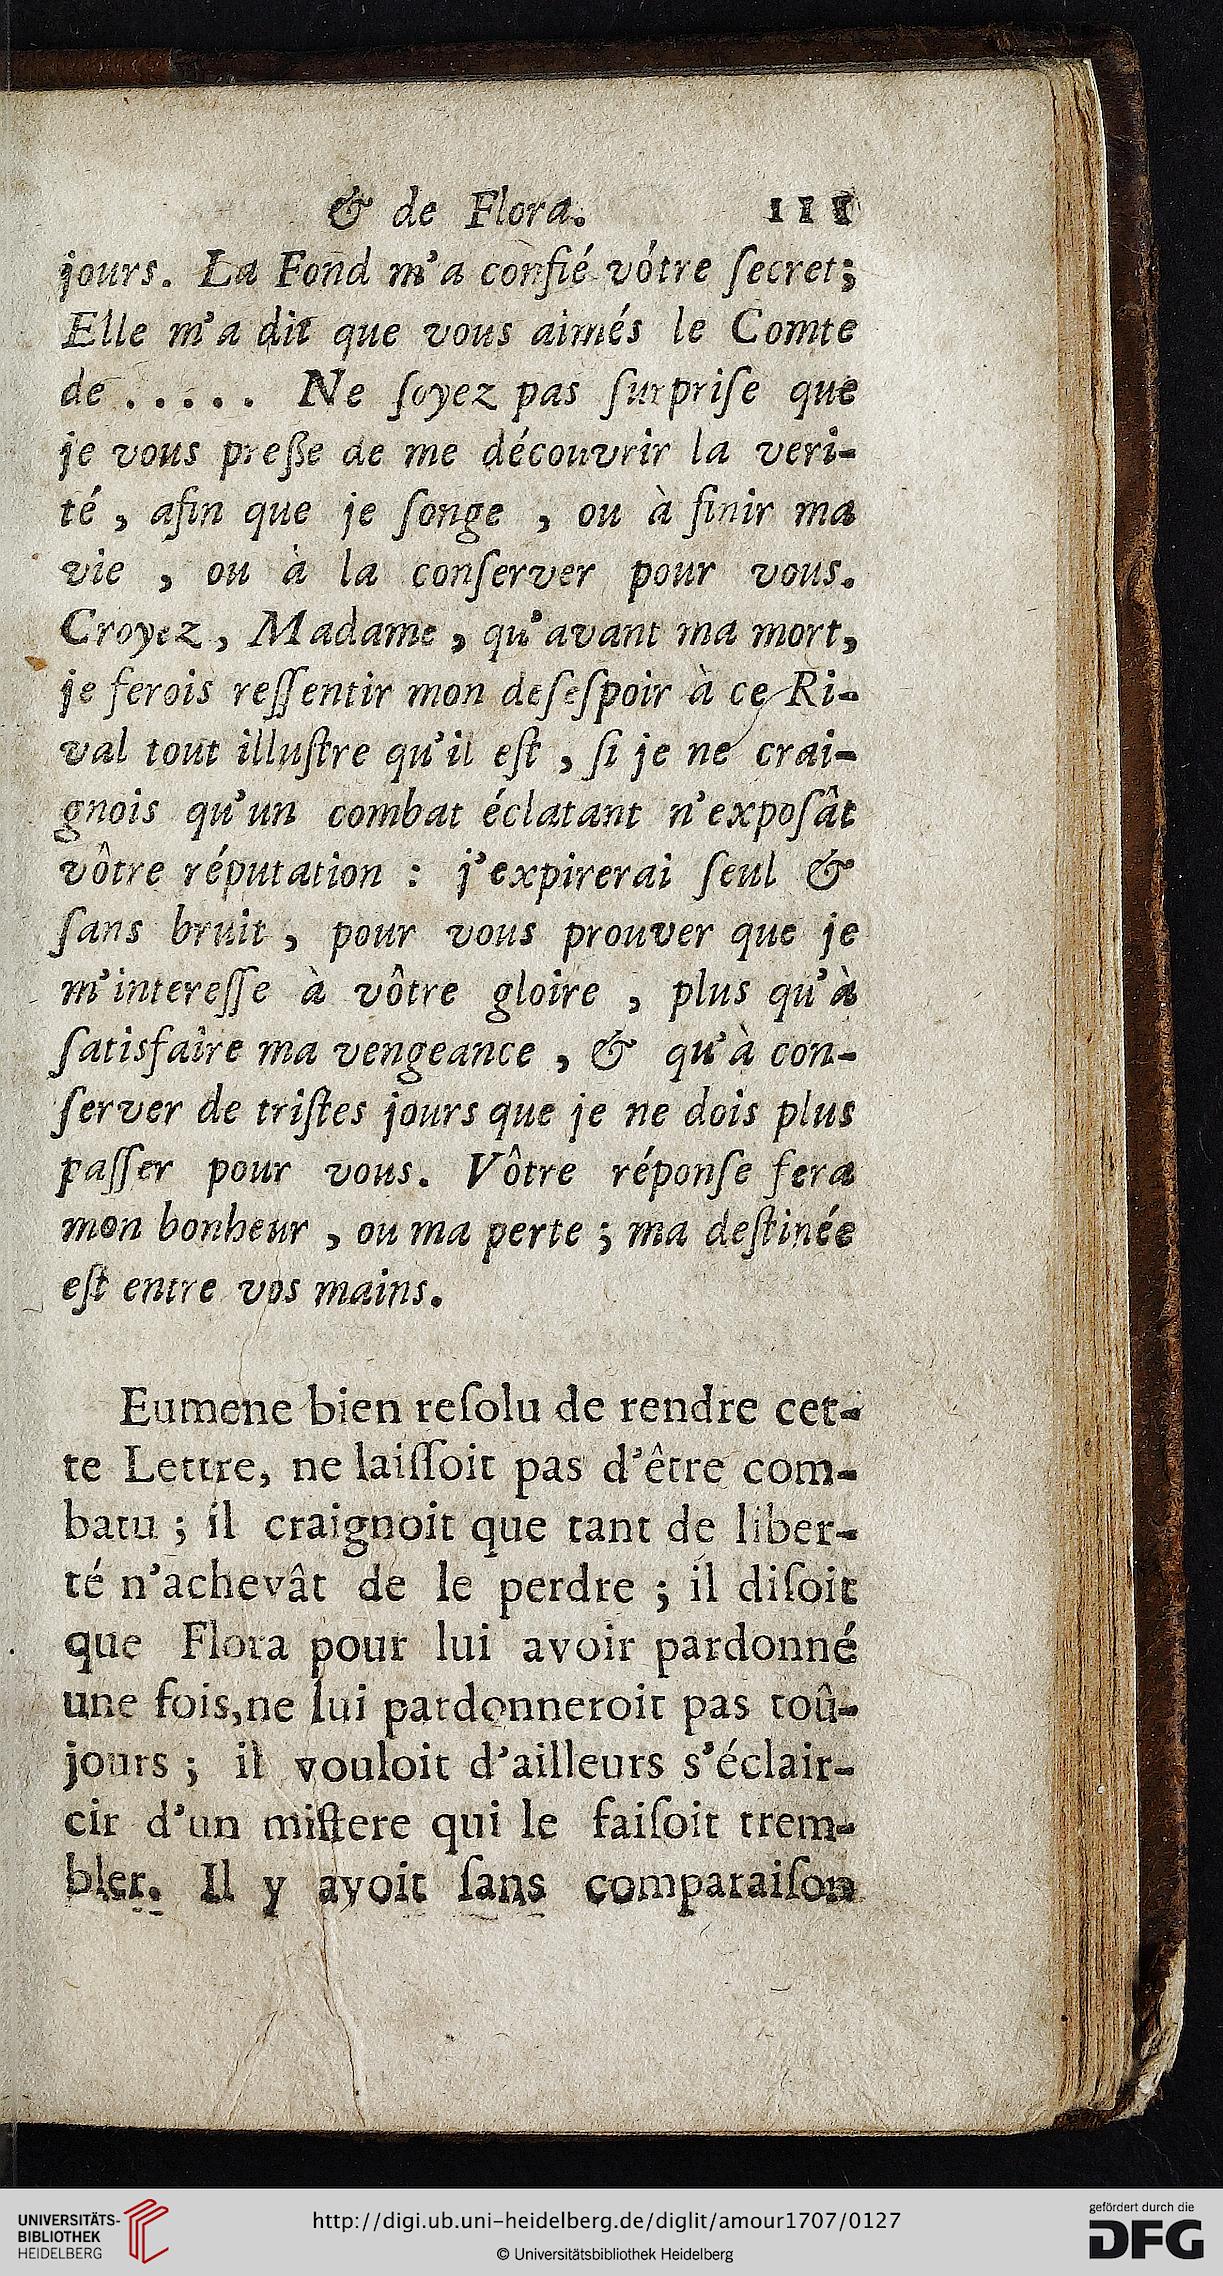 & de Flora. 111
jours. La Fond m'a confié vôtre ſecret;
Elle m'a dit que vous aimés le Comte
de ..... Ne ſoyez pas ſurpriſe que
je vous preße de me découvrir la veri-
té, afin que je ſonge, ou à finir ma
vie, ou à la conſerver pour vous.
Croyez, Madame, qu'avant ma mort,
je ferois reſſentir mon deſeſpoir à ce Ri-
val tout illuſtre qu'il eſt, ſi je ne crai-
gnois qu'un combat éclatant n'expoſât
vôtre réputation : j'expirerai ſeul &
ſans bruit, pour vous prouver que je
m'intereſſe à vôtre gloire, plus qu'à
ſatisfaire ma vengeance, & qu'à con-
ſerver de triſtes jours que je ne dois plus
paſſer pour vous. Vôtre réponſe fera
mon bonheur, ou ma perte; ma deſtinée
eſt entre vos mains.
Eumene bien reſolu de rendre cet-
te Lettre, ne laiſſoit pas d'être com-
batu; il craignoit que tant de liber-
té n'achevât de le perdre; il diſoit
que Flora pour lui avoir pardonné
une fois, ne lui pardonneroit pas toû-
jours; il vouloit d'ailleurs s'éclair-
cir d'un miſtere qui le faiſoit trem-
bler. Il y avoit ſans comparaiſon
UNIVERSITÄTS-
BIBLIOTHEK
HEIDELBERG
http://digi.ub.uni-heidelberg.de/diglit/amour1707/0127
© Universitätsbibliothek Heidelberg
gefördert durch die
DFG